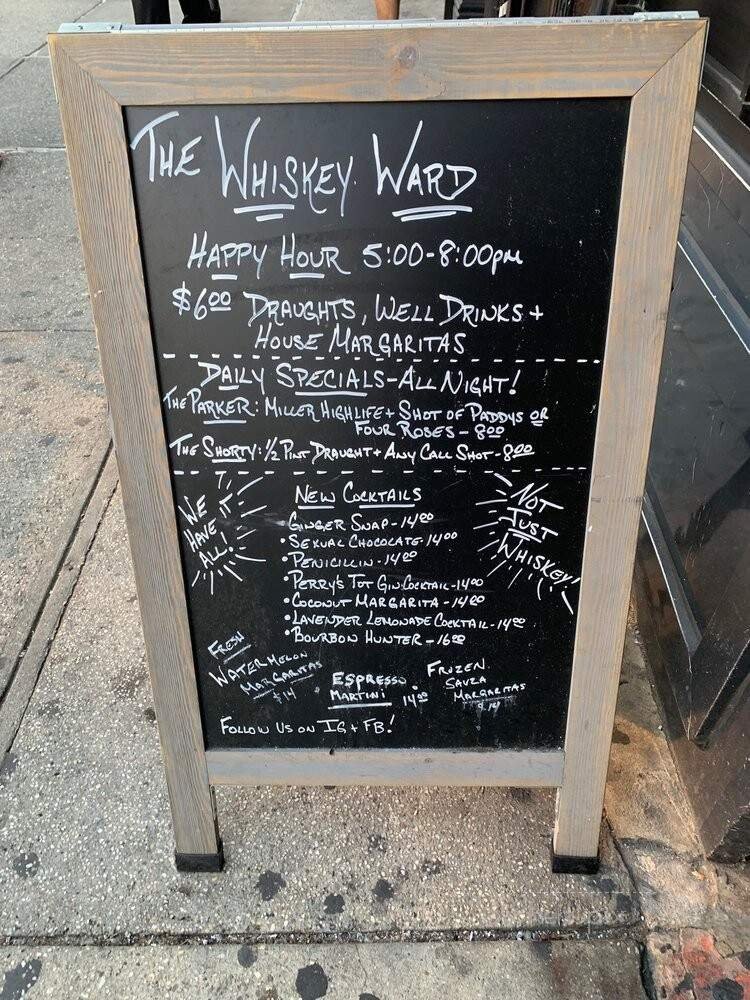 THE WHISKEY WARD
HAPPY HOUR 5:00-8:00PM
$6.00 DRAUGHTS, WELL DRINKS +
HOUSE MARGARITAS
DAILY SPECIALS-ALL NIGHT!
THE PARKER: MILLER HIGHLIFE + SHOT OF PADDYS OR
FOUR ROSES - 8.00
THE SHORTY: 1/2 PINT DRAUGHT + ANY CALL SHOT - 8.00
WE
HAVE IT
ALL!
NEW COCKTAILS
• GINGER SNAP - 14.00
• SEXUAL CHOCOLATE - 14.00
• PENICILLIN - 14.00
• PERRY'S TOT GIN COCKTAIL - 14.00
• COCONUT MARGARITA - 14.00
• LAVENDER LEMONADE COCKTAIL - 14.00
• BOURBON HUNTER - 16.00
NOT
JUST
WHISKEY!
FRESH
WATERMELON
MARGARITAS
$14
ESPRESSO
MARTINI 14.00
FROZEN
SAUZA
MARGARITAS
$14
FOLLOW US ON IG + FB!